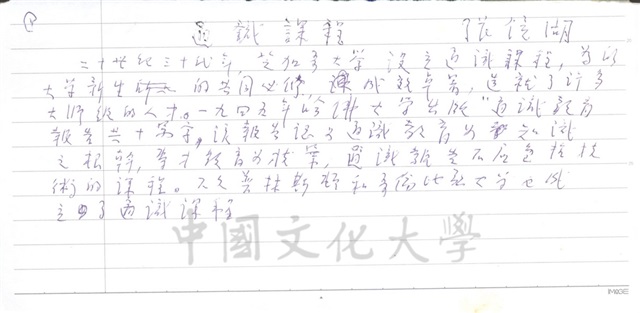 通識課程 張鏡湖
二十世紀三十代年，芝加哥大學設立通識課程，為以
大学新生 的共同必修，課成就卓著，造就了許多
大師級的人才。一九四五年哈佛大学出版"通識教育
報告共十 字，該報告認為通識教育为 知識
之根幹，專才教育为枝葉，通識教育不應包括技
術的課程。不久普林斯頓和哥倫比亞大学也成
立 了通識課程
中國文化大學
IMAGE